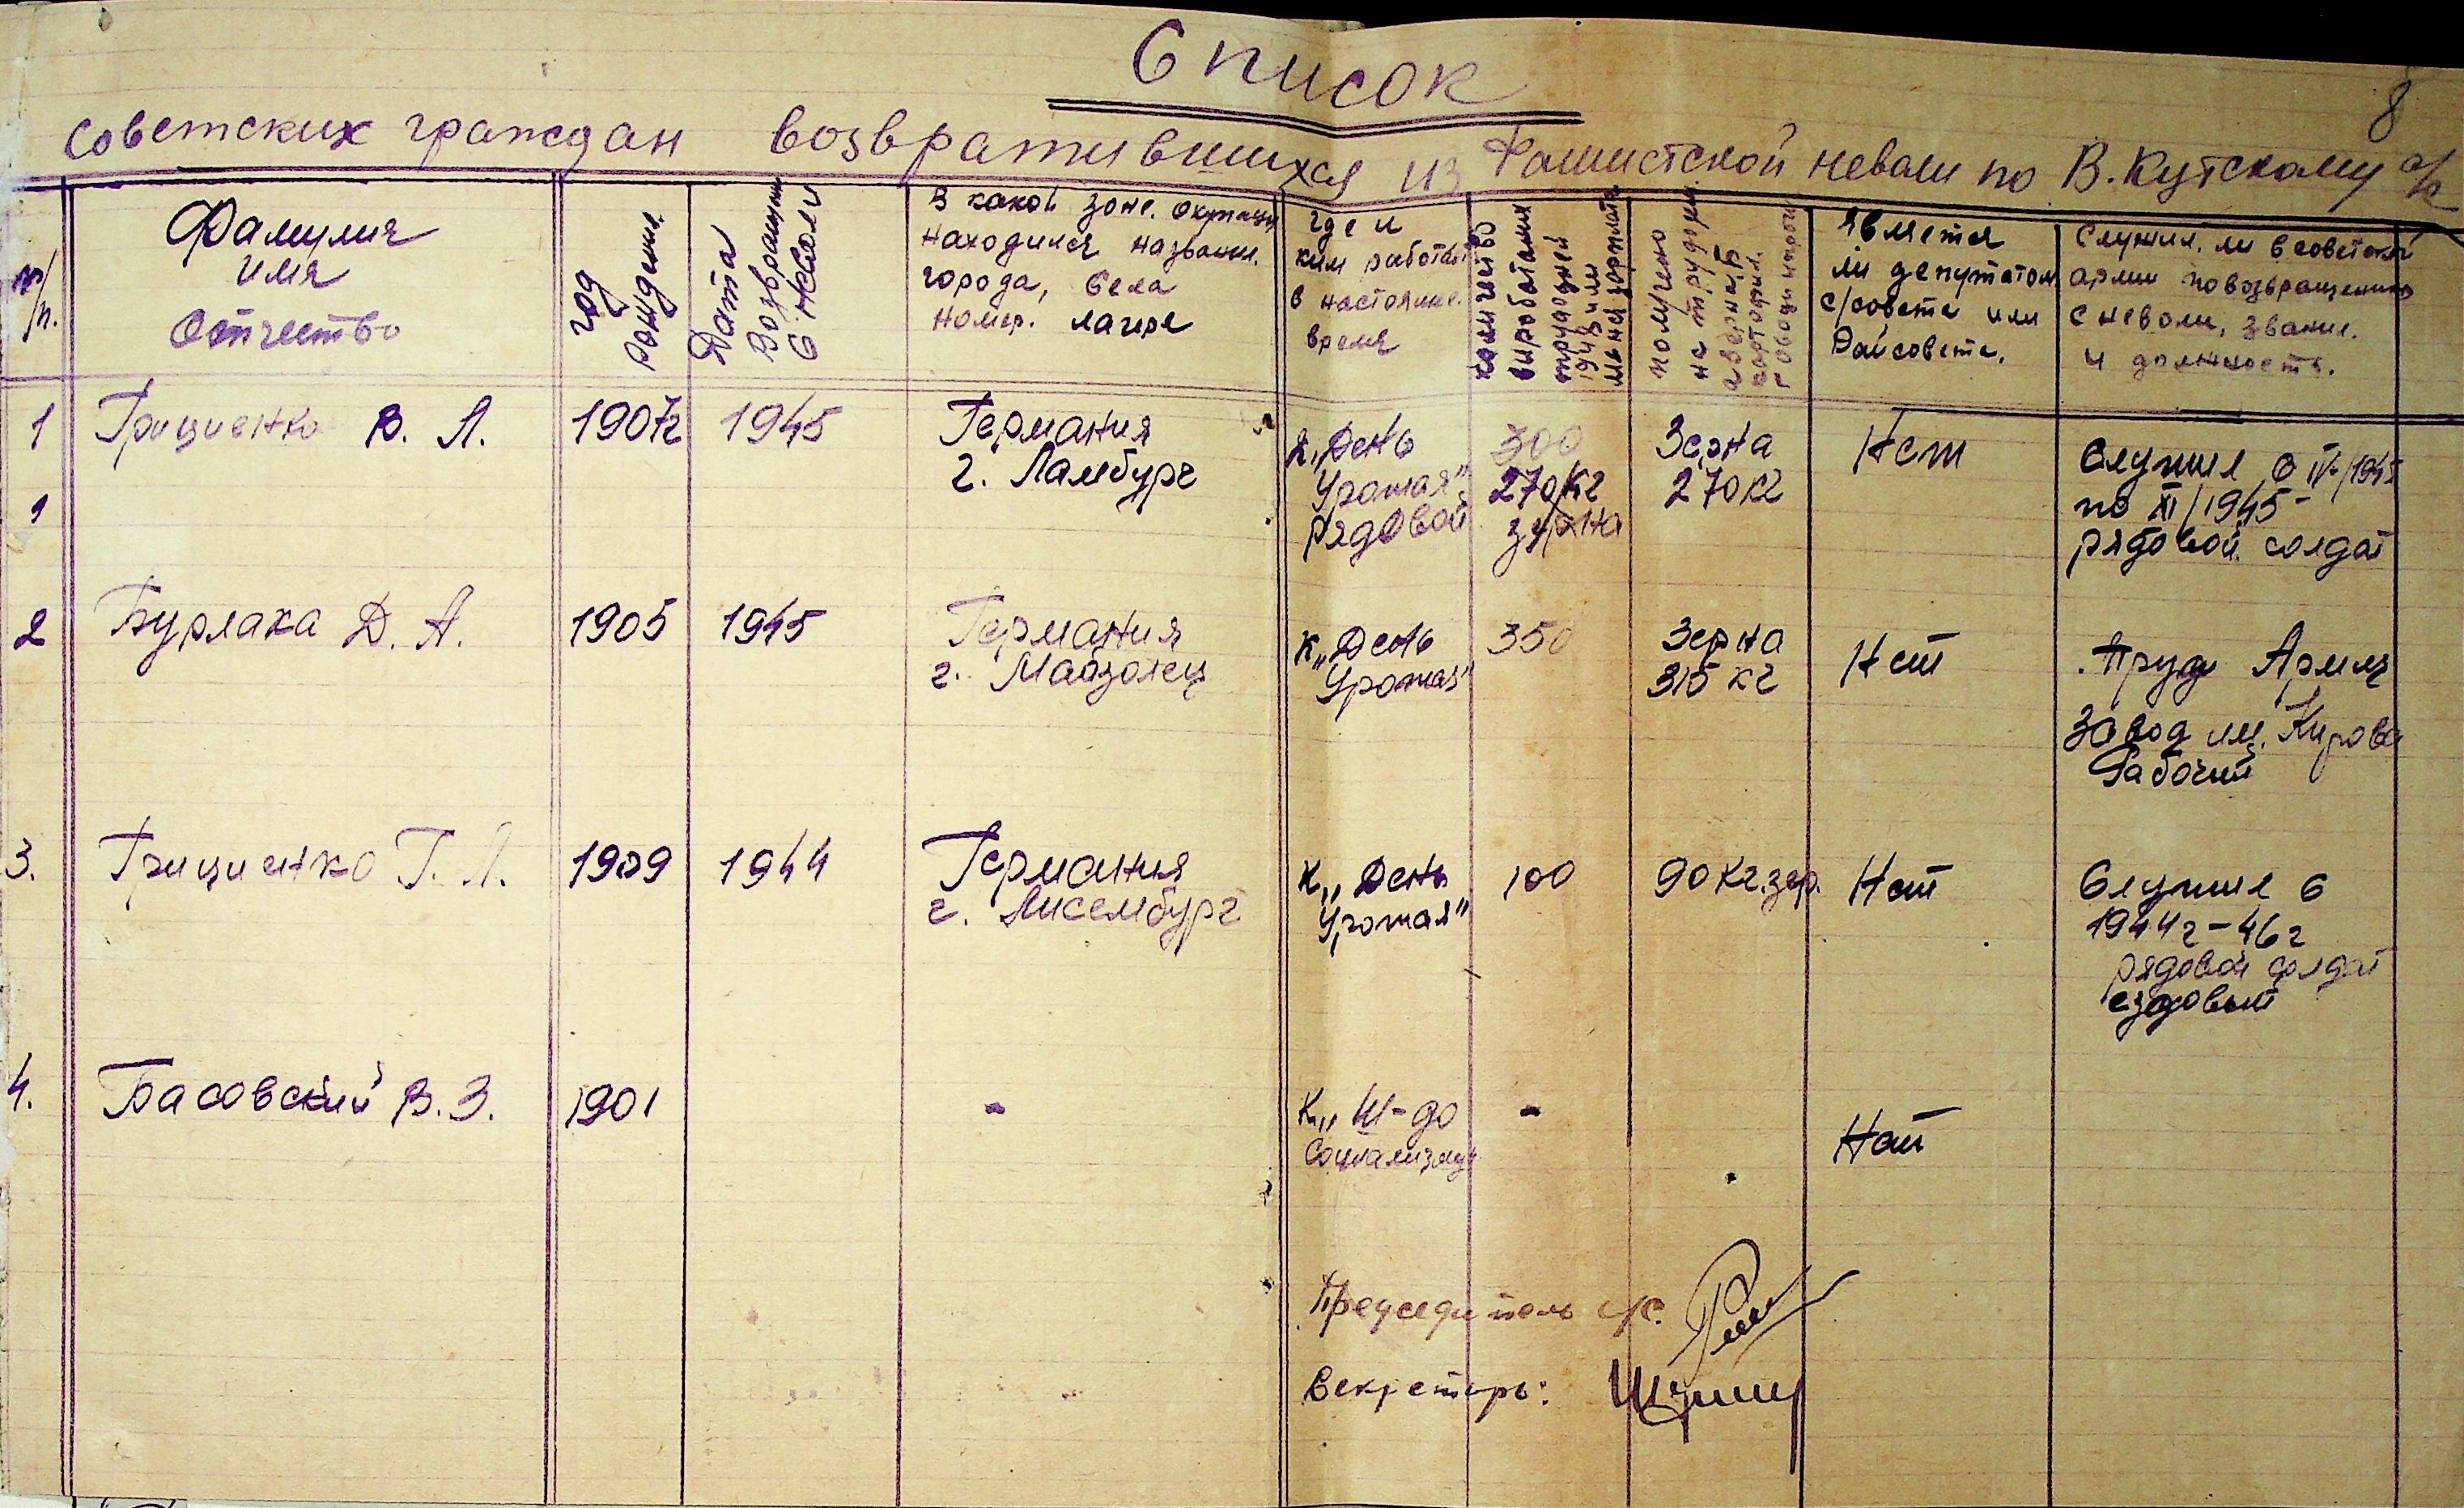 Список
8
Советских граждан возвратившихся из Фашистской неволи по В. Кутскому с/с
№/п.
Фамилия
имя
Отчество
год
рождения
Дата
Возвращения
с неволи
В какой зоне. окупации
находился название.
города, села
номер. лагеря
где и
ким работает
в настоящее.
время
количество
выработаних
трудодней
1948 или
получено
на трудодни
Является
ли депутатом
с/совета или
Райсовета.
Служил. ли в советской
армии повозвращению
с неволи, звание.
и должность.
1 Гриценко В. Л. 1907г 1945 Германия
г. Ламбург
к. „День
Урожая"
рядовой
300
270 кг
зерна
Зерна
270 кг
Нет
Служил с IV/1945
по XI/1945 -
рядовой солдат
2 Бурлака Д. А. 1905 1945 Германия
г.
к „День
Урожая"
350
Зерна
315 кг
Нет
Труд Армия
завод им. Кирова
Рабочий
3. Гриценко Г. Л. 1909 1944 Германия
г. Лисембург
к „День
Урожая"
100
90 кг. зер.
Нет
Служил с
1944г - 46г
рядовой солдат
ездовый
4. Басовский В. З. 1901 -
к „Ш-до
Социализму
-
Нет
Председитель с/с.
Секретарь: